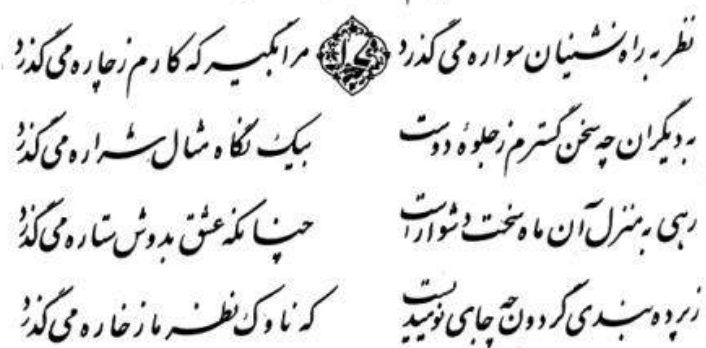 نظر به راه‌نشینان سواره می‌گذرد مرا بگیر که کارم ز چاره می‌گذرد
به دیگران چه سخن گسترم ز جلوهٔ دوست بیک نگاه مثال شراره می‌گذرد
رهی به منزل آن ماه سخت دشوار است چنانکه عشق بدوش ستاره می‌گذرد
ز پرده‌بندی گردون چه جای نومیدیست که ناوک نظر ما ز خاره می‌گذرد